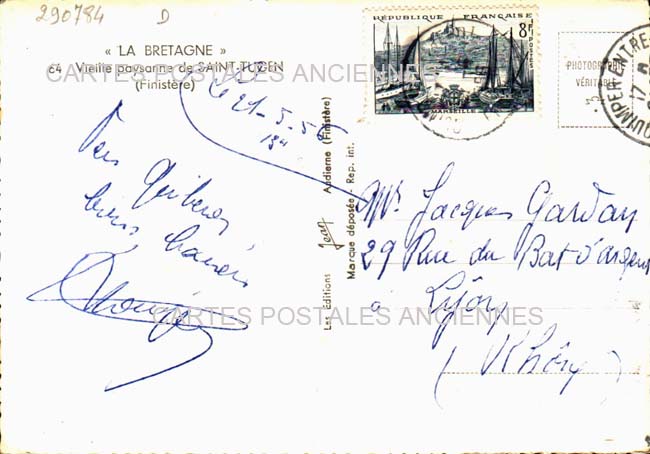 290784 D
« LA BRETAGNE »
64 Vieille paysanne de SAINT-TUGEN
(Finistère)
CARTES POSTALES ANCIENNES
le 21-5-56
RÉPUBLIQUE FRANÇAISE
8F
POSTES
MARSEILLE
PHOTOGRAPHIE
VÉRITABLE
QUIMPER ENTREP
17
Les Editions Jean Audierne (Finistère)
Marque déposée - Rep. int.
bons baisers
Mr Jacques Gardan
29 Rue du Bat d'argent
à Lyon
(Rhône)
CARTES POSTALES ANCIENNES